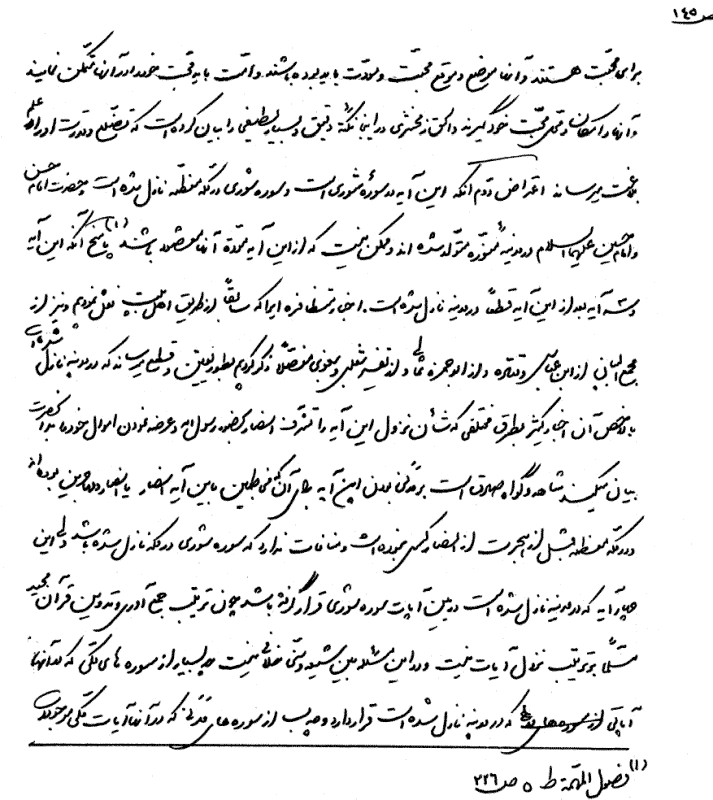 ص ١٤٥
برای محبّت هستند و آنها موضع و موقع محبّت و مودّت باید بوده باشند و امّت باید محبّت خود را در آنها متمکّن نمایند
و آنها را مکان محبّت خود گیرند والحق زمخشری در اینجا نکتهٔ دقیق و بسیار لطیفی را بیان کرده است که تضلّع و قدرت او را در علم
بلاغت میرساند اعتراض دوم آنکه این آیه در سورهٔ شوری است و سوره شوری در مکّه معظّمه نازل شده است و حضرت امام حسن
و امام حسین علیهما السلام در مدینهٔ منوّره متولّد شده اند و ممکن نیست که از این آیه مودّة آنها مقصود باشد (١) پاسخ آنکه این آیه
و سه آیه بعد از این آیه قطعاً در مدینه نازل شده است. اخبار متظافره ایرا که سابقاً از طریق اهل بیت نقل نمودم و نیز از
مجمع البیان از ابن عباس و قتاده و از ابو حمزه ثمالی و از تفسیر ثعلبی و بغوی مفصّلاً ذکر کردیم بطور یقین و قطع میرساند که در مدینه نازل شده است
بالاخص آن اخبار کثیر بطرق مختلفی که شأن نزول این آیه را تشرّف انصار بحضور رسول الله و عرضه نمودن اموال خود را به آنحضرت
بیان میکنید شاهد و گواه صادق است بر مدنی بودن این آیه بجای آن که مخاطبین باین آیه انصار یا انصار و مهاجرین بوده اند
و در مکّه معظمه قبل از هجرت از انصار کسی نبوده است و منافات ندارد که سوره شوری در مکه نازل شده باشد ولی این
چهار آیه که در مدینه نازل شده است در بین آیات سوره شوری قرار گرفته باشد چون ترتیب جمع آوری و تدوین قرآن مجید
مسلّماً بر ترتیب نزول آیات نیست و در این مسئله بین شیعه و سنّی خلافی نیست چه بسیار از سوره های مکّی که در آنها
آیاتی که در مدینه نازل شده است قرار دارد و چه بسا از سوره های مدنی که در آنها آیات مکّی موجود است
(١) فصول المهمّة ط ٥ ص ٢٢٦